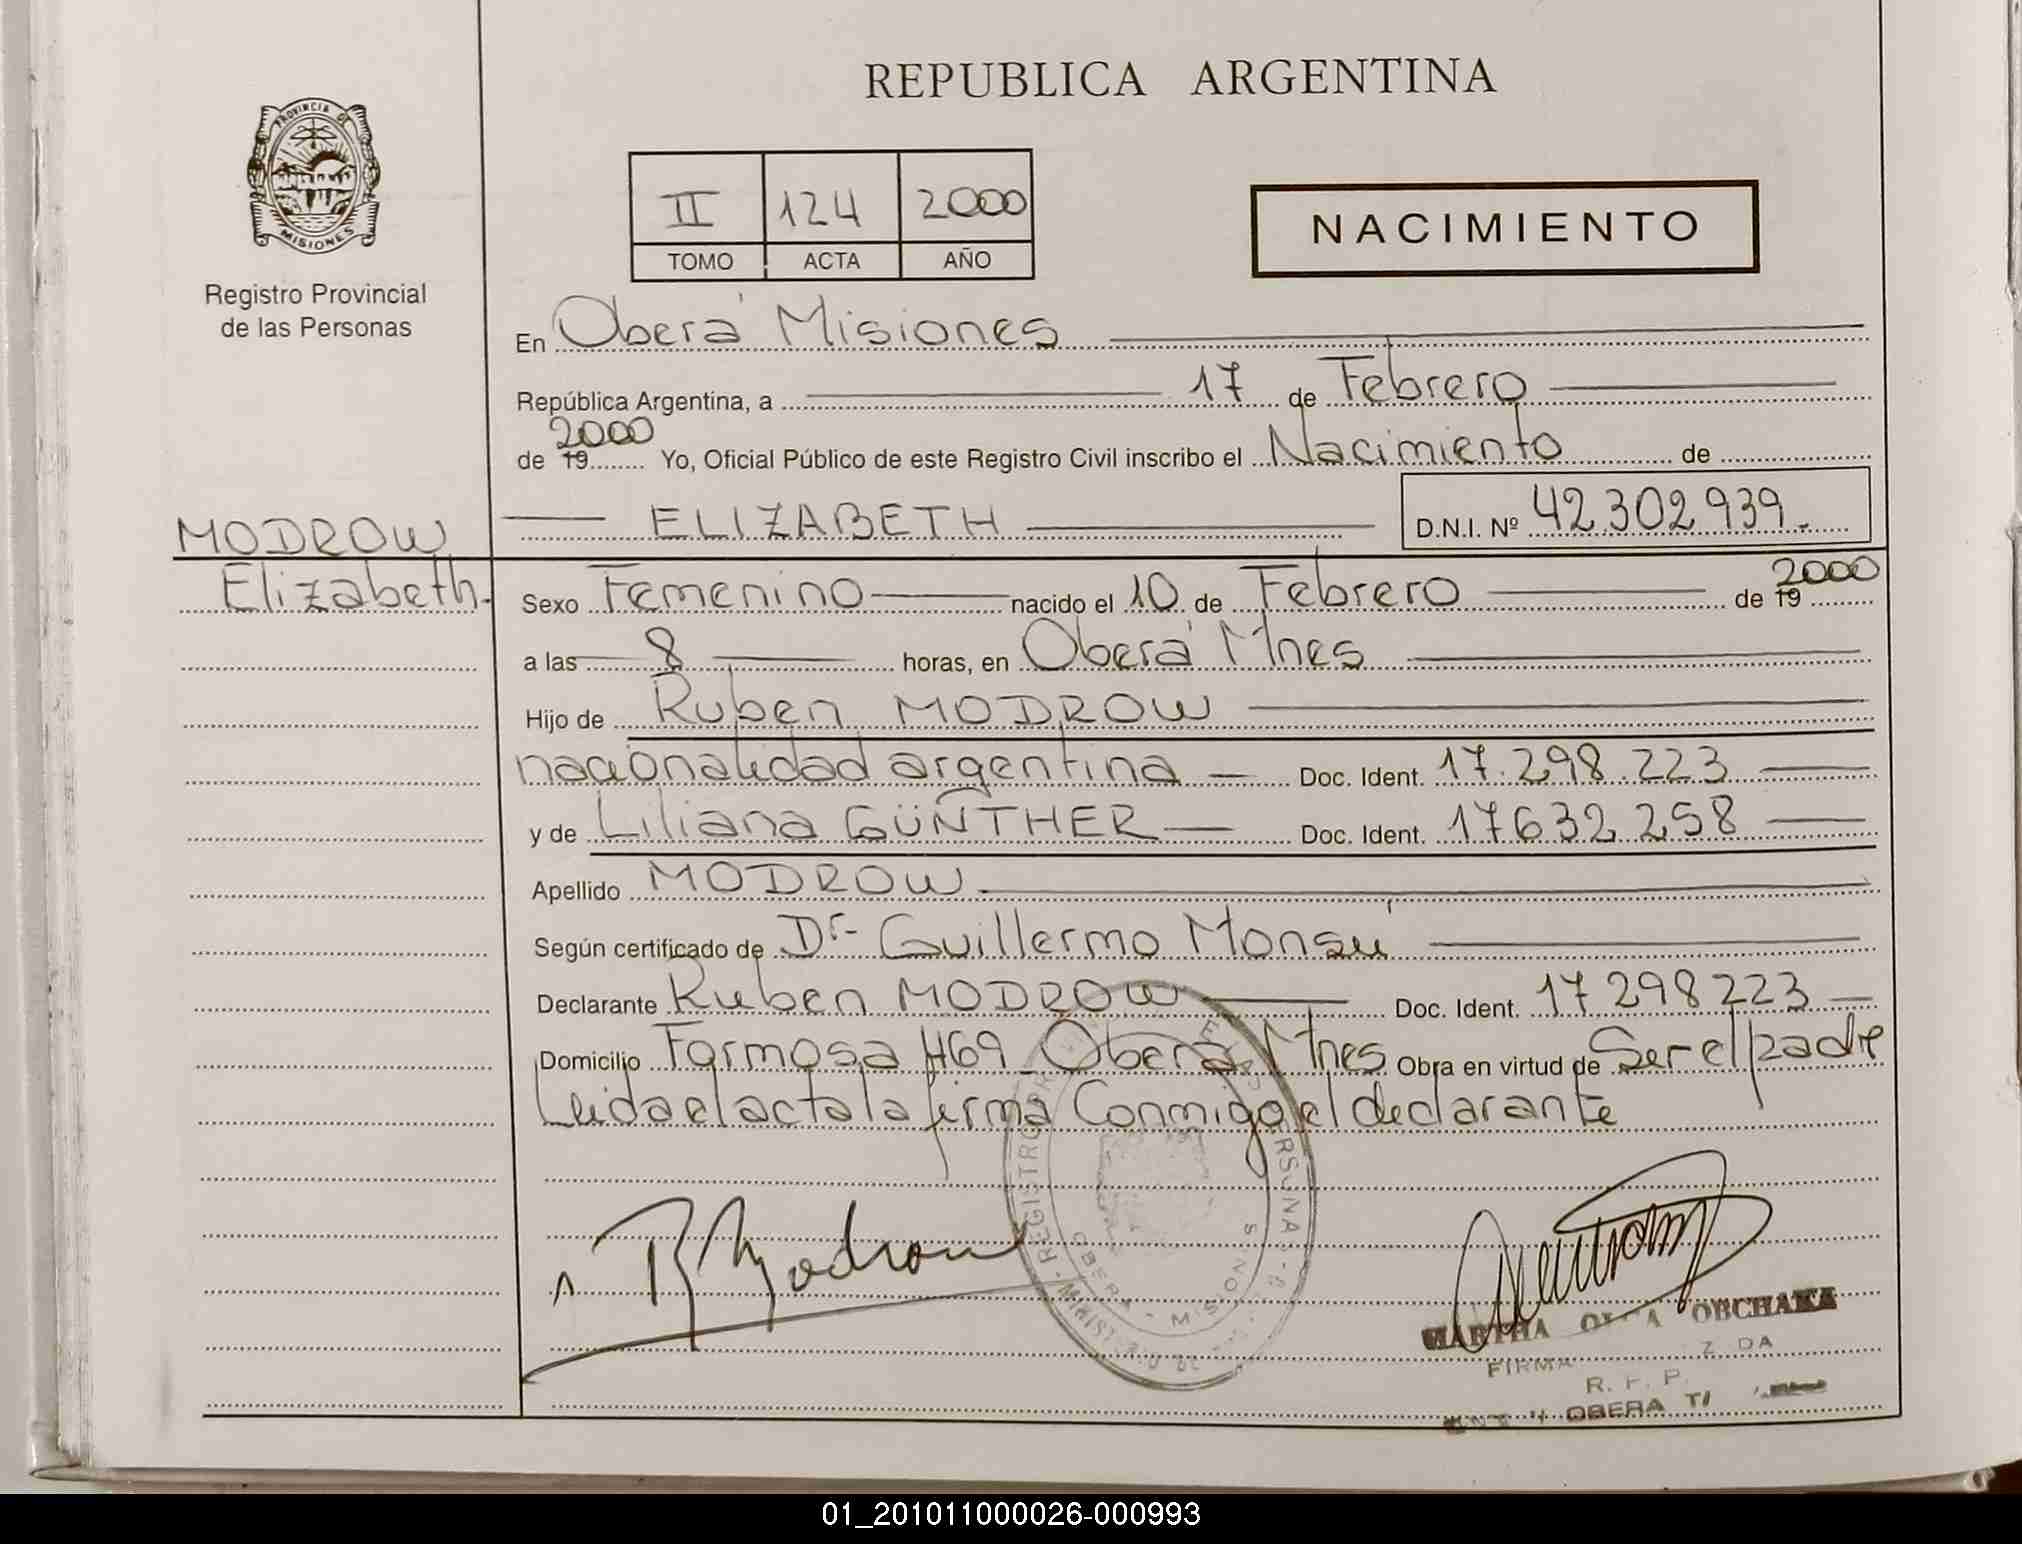 REPUBLICA ARGENTINA
PROVINCIA DE
MISIONES
Registro Provincial
de las Personas
II 124 2000
TOMO ACTA AÑO
NACIMIENTO
En Oberá Misiones
República Argentina, a 17 de Febrero
2000
de 19 Yo, Oficial Público de este Registro Civil inscribo el Nacimiento de
MODROW
ELIZABETH D.N.I. Nº 42.302.939.
Elizabeth.
2000
Sexo Femenino nacido el 10 de Febrero de 19
a las 8 horas, en Oberá Mnes
Hijo de Ruben MODROW
nacionalidad argentina Doc. Ident. 17.298.223
y de Liliana GÜNTHER Doc. Ident. 17632258
Apellido MODROW
Según certificado de Dr. Guillermo Monsú
Declarante Ruben MODROW Doc. Ident. 17298223
Domicilio Formosa 469 Oberá Mnes Obra en virtud de Ser el padre
Leida el acta la firma Conmigo el declarante
R Modrow
REGISTRO
MINISTERIO DE
OBERA - MISIONES
MARTHA OBCHAKA
FIRMA
R. P. P.
OBERA
01_201011000026-000993